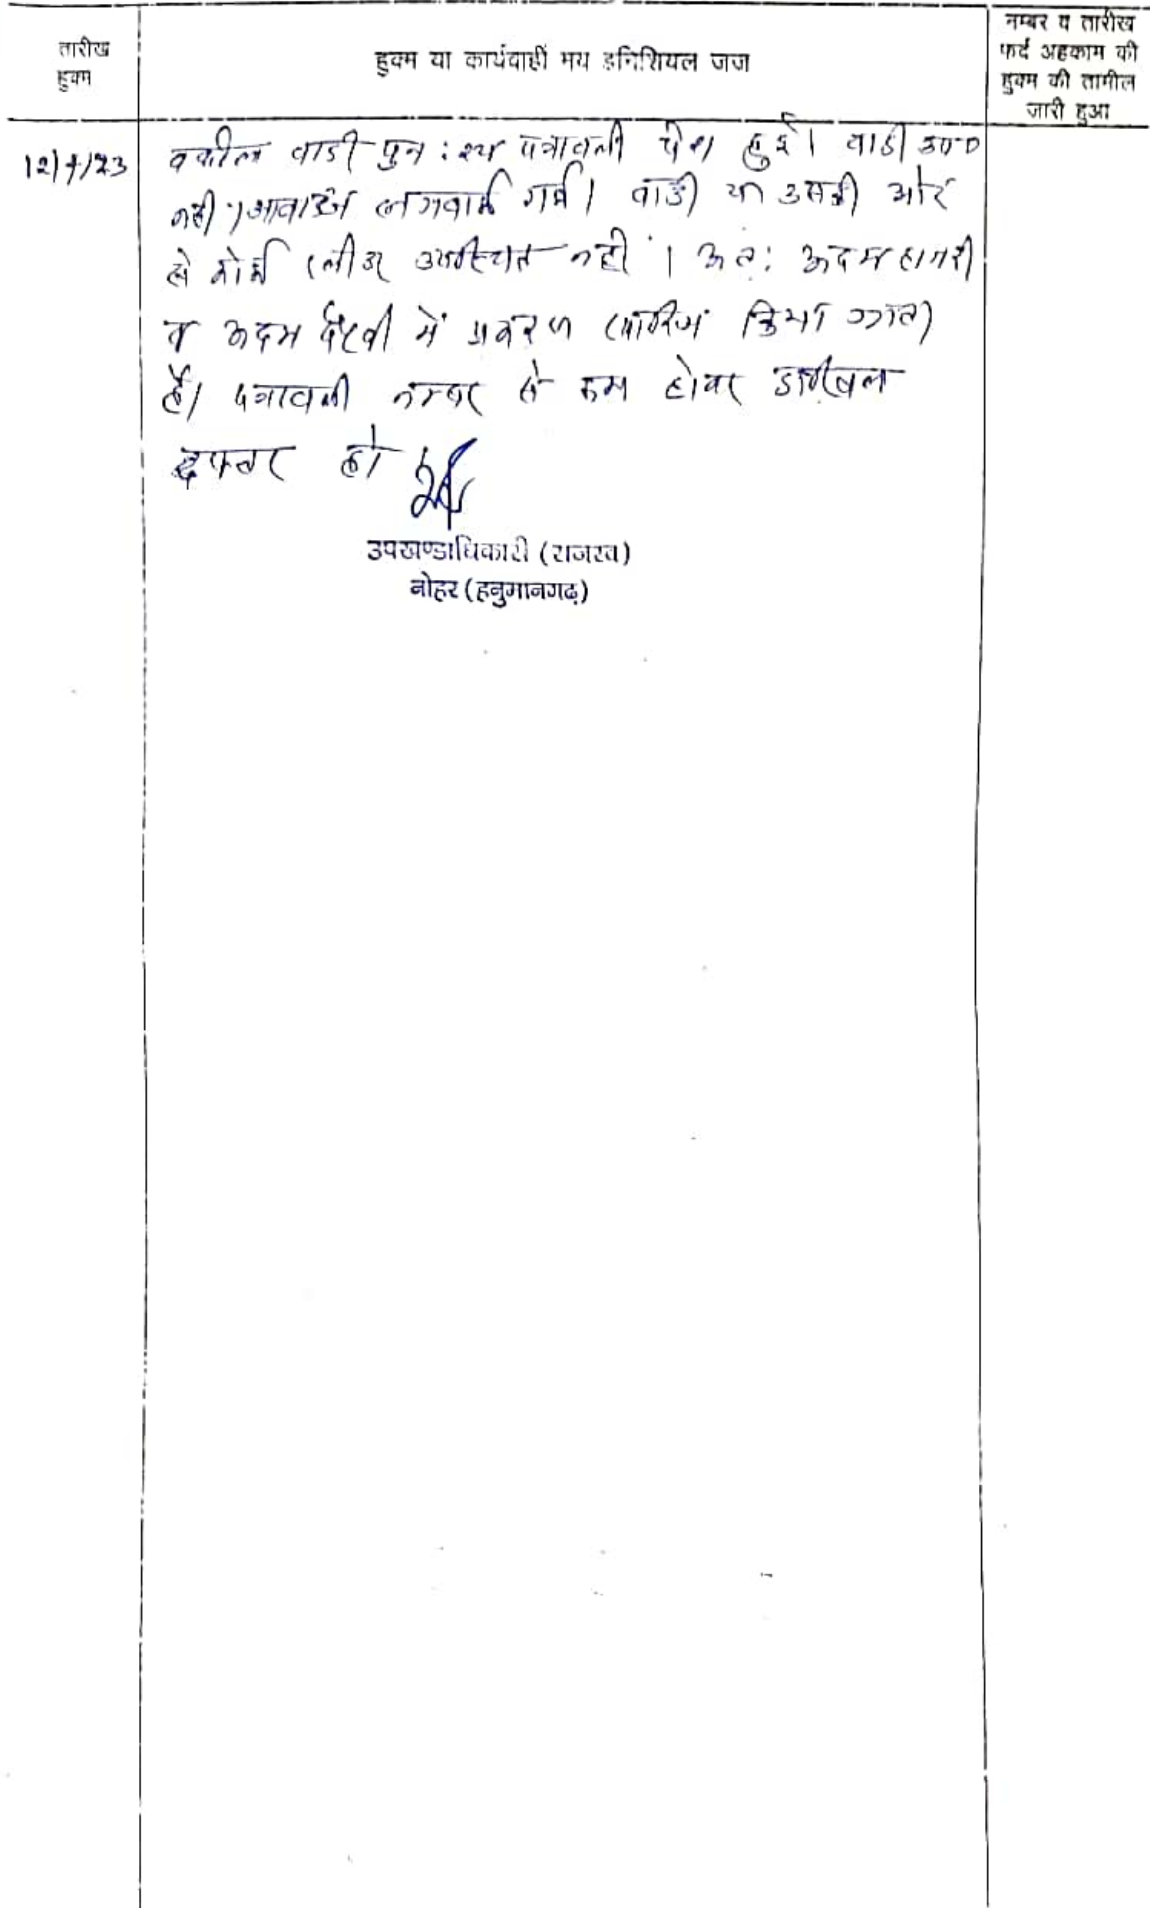 तारीख
हुक्म
हुक्म या कार्यवाही मय इनिशियल जज
नम्बर व तारीख
फर्द अहकाम की
हुक्म की तामील
जारी हुआ
12/4/23
वकील वादी पुन: पत्रावली पेश हुई। वादी उप०
नही। आवाजें लगवाई गई। वादी या उसकी ओर
से कोई प्लीडर उपस्थित नहीं । अत: अदम हाजरी
व अदम पैरवी में प्रकरण खारिज किया जाता
है। पत्रावली नम्बर से कम होकर दाखिल
दफ्तर हो
उपखण्डाधिकारी (राजस्व)
नोहर (हनुमानगढ़)